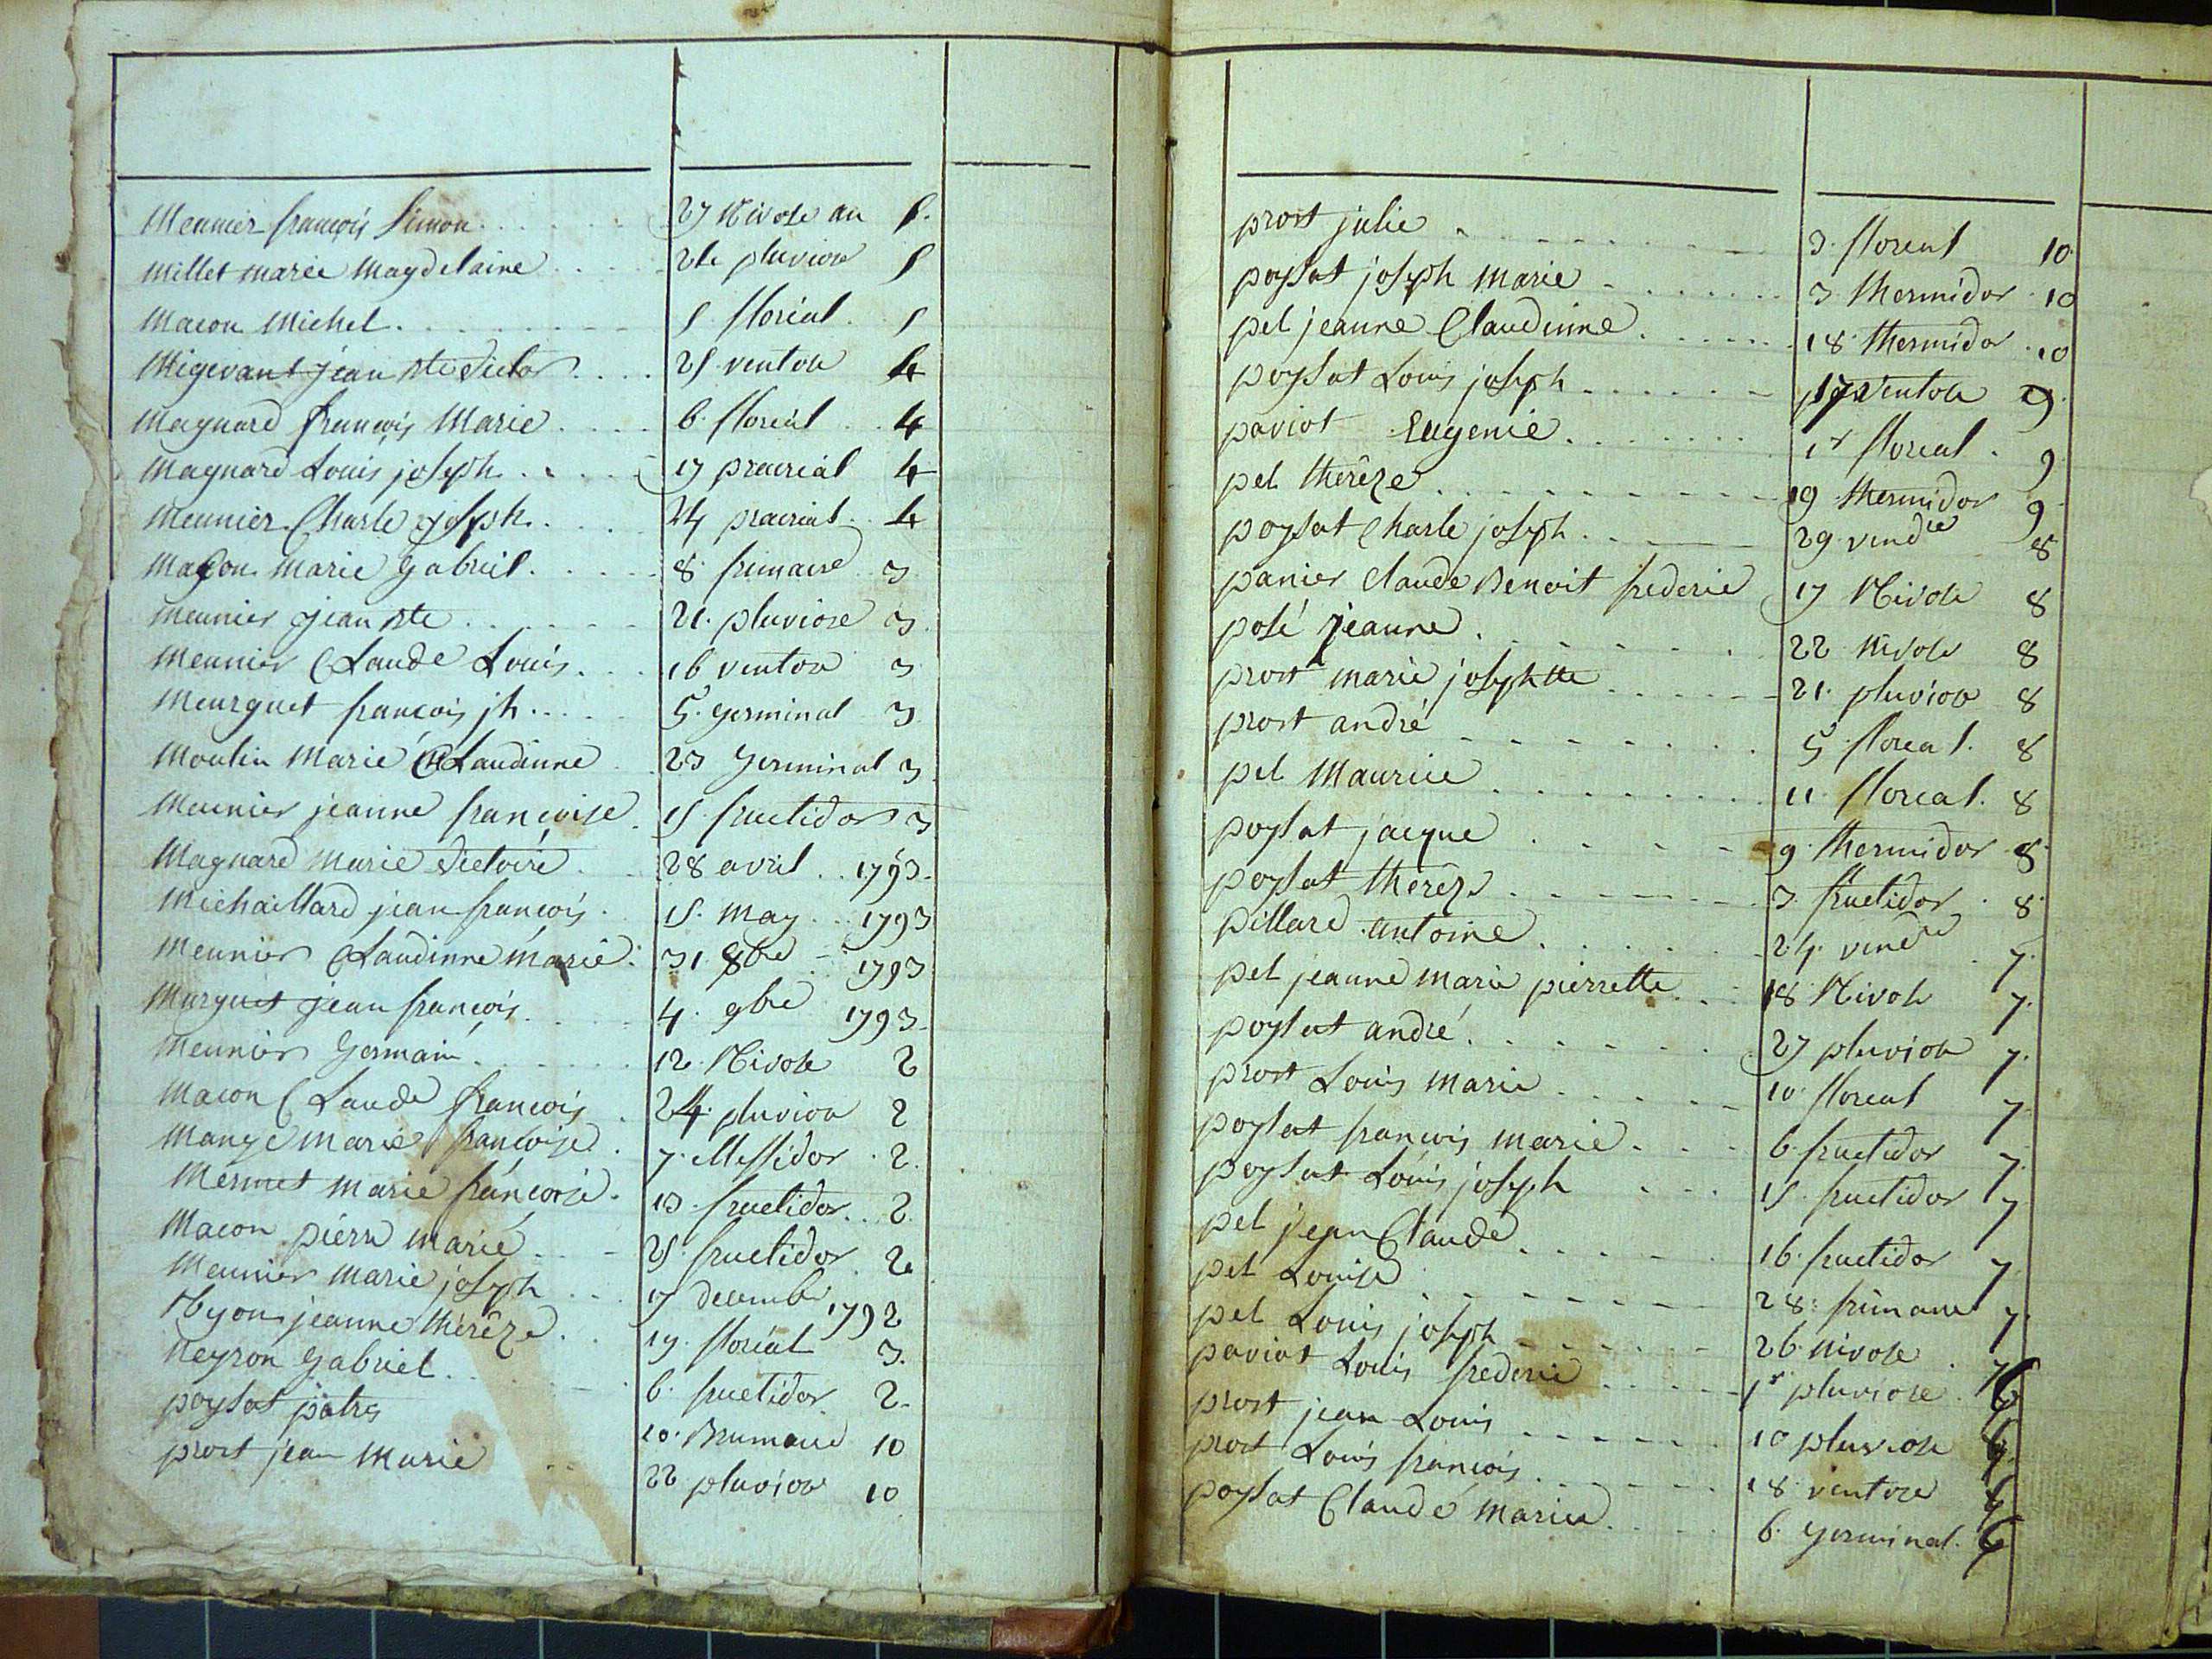 Meunier françois Simon 27 Nivose an 5.
Millet marie Magdelaine pluviose 5
Macon Michel 5 floréal 5
Migevant jean Bte Victor 25 ventose 4
Magnard françois Marie 6 floréal 4
Magnard Louis joseph 17 prairial 4
Meunier Charle joseph 24 prairial 4
Maçon marie gabriel 8 frimaire 3
Meunier jean Bte 21 pluviose 3
Meunier Claude Louis 16 ventose 3
Meurguet françois jh 5 germinal 3
Moulin Marie Claudinne 23 germinal 3
Meunier jeanne françoise 15 fructidor 3
Magnard Marie Victoire 28 avril 1793
Michaillard jean françois 15 may 1793
Meunier Claudinne Marie 31 8bre 1793
Murguet jean françois 4 9bre 1793
Meunier Germain 12 Nivose 2
Macon Claude françois 24 pluviose 2
Mange Marie françoise 7 Messidor 2
Mermet Marie françoise 13 fructidor 2
Macon pierre Marie 25 fructidor 2
Meunier Marie joseph 17 decembre 1792
Nyon jeanne thérêze 19 floréal 3.
Neyron gabriel 6 fructidor 2
poysat 10 Brumaire 10
prost jean Marie 22 pluviose 10
prost julie 3 floreal 10
poysat joseph Marie 3 thermidor 10
pel jeanne Claudinne 18 thermidor 10
poysat Louis joseph 17 Ventose 9
paviot Eugenie 1r floreal 9
pel thérêze 19 thermidor 9
poysat Charle joseph 29 vendre 8
panier Claude Benoit frederic 17 Nivose 8
posé jeanne 22 Nivose 8
prost marie josephtte 21 pluviose 8
prost andré 5 floreal 8
pel Maurice 11 floreal 8
poysat jacque 9 thermidor 8
poysat thérêze 3 fructidor 8
pillard antoine 24 vendre 7
pel jeanne marie pierrette 18 Nivose 7
poysat andré 27 pluviose 7
prost Louis Marie 10 floreal 7
poysat françois Marie 6 fructidor 7
poysat Louis joseph 15 fructidor 7
pel jean Claude 16 fructidor 7
pel Louise 28 frimaire 7
pel Louis joseph 26 nivose
paviot Louis frederic 1r pluviose 6
prost jean Louis 10 pluviose 6
prost Louis françois 18 ventose 6
poysat Claude Marie 6 germinal 6